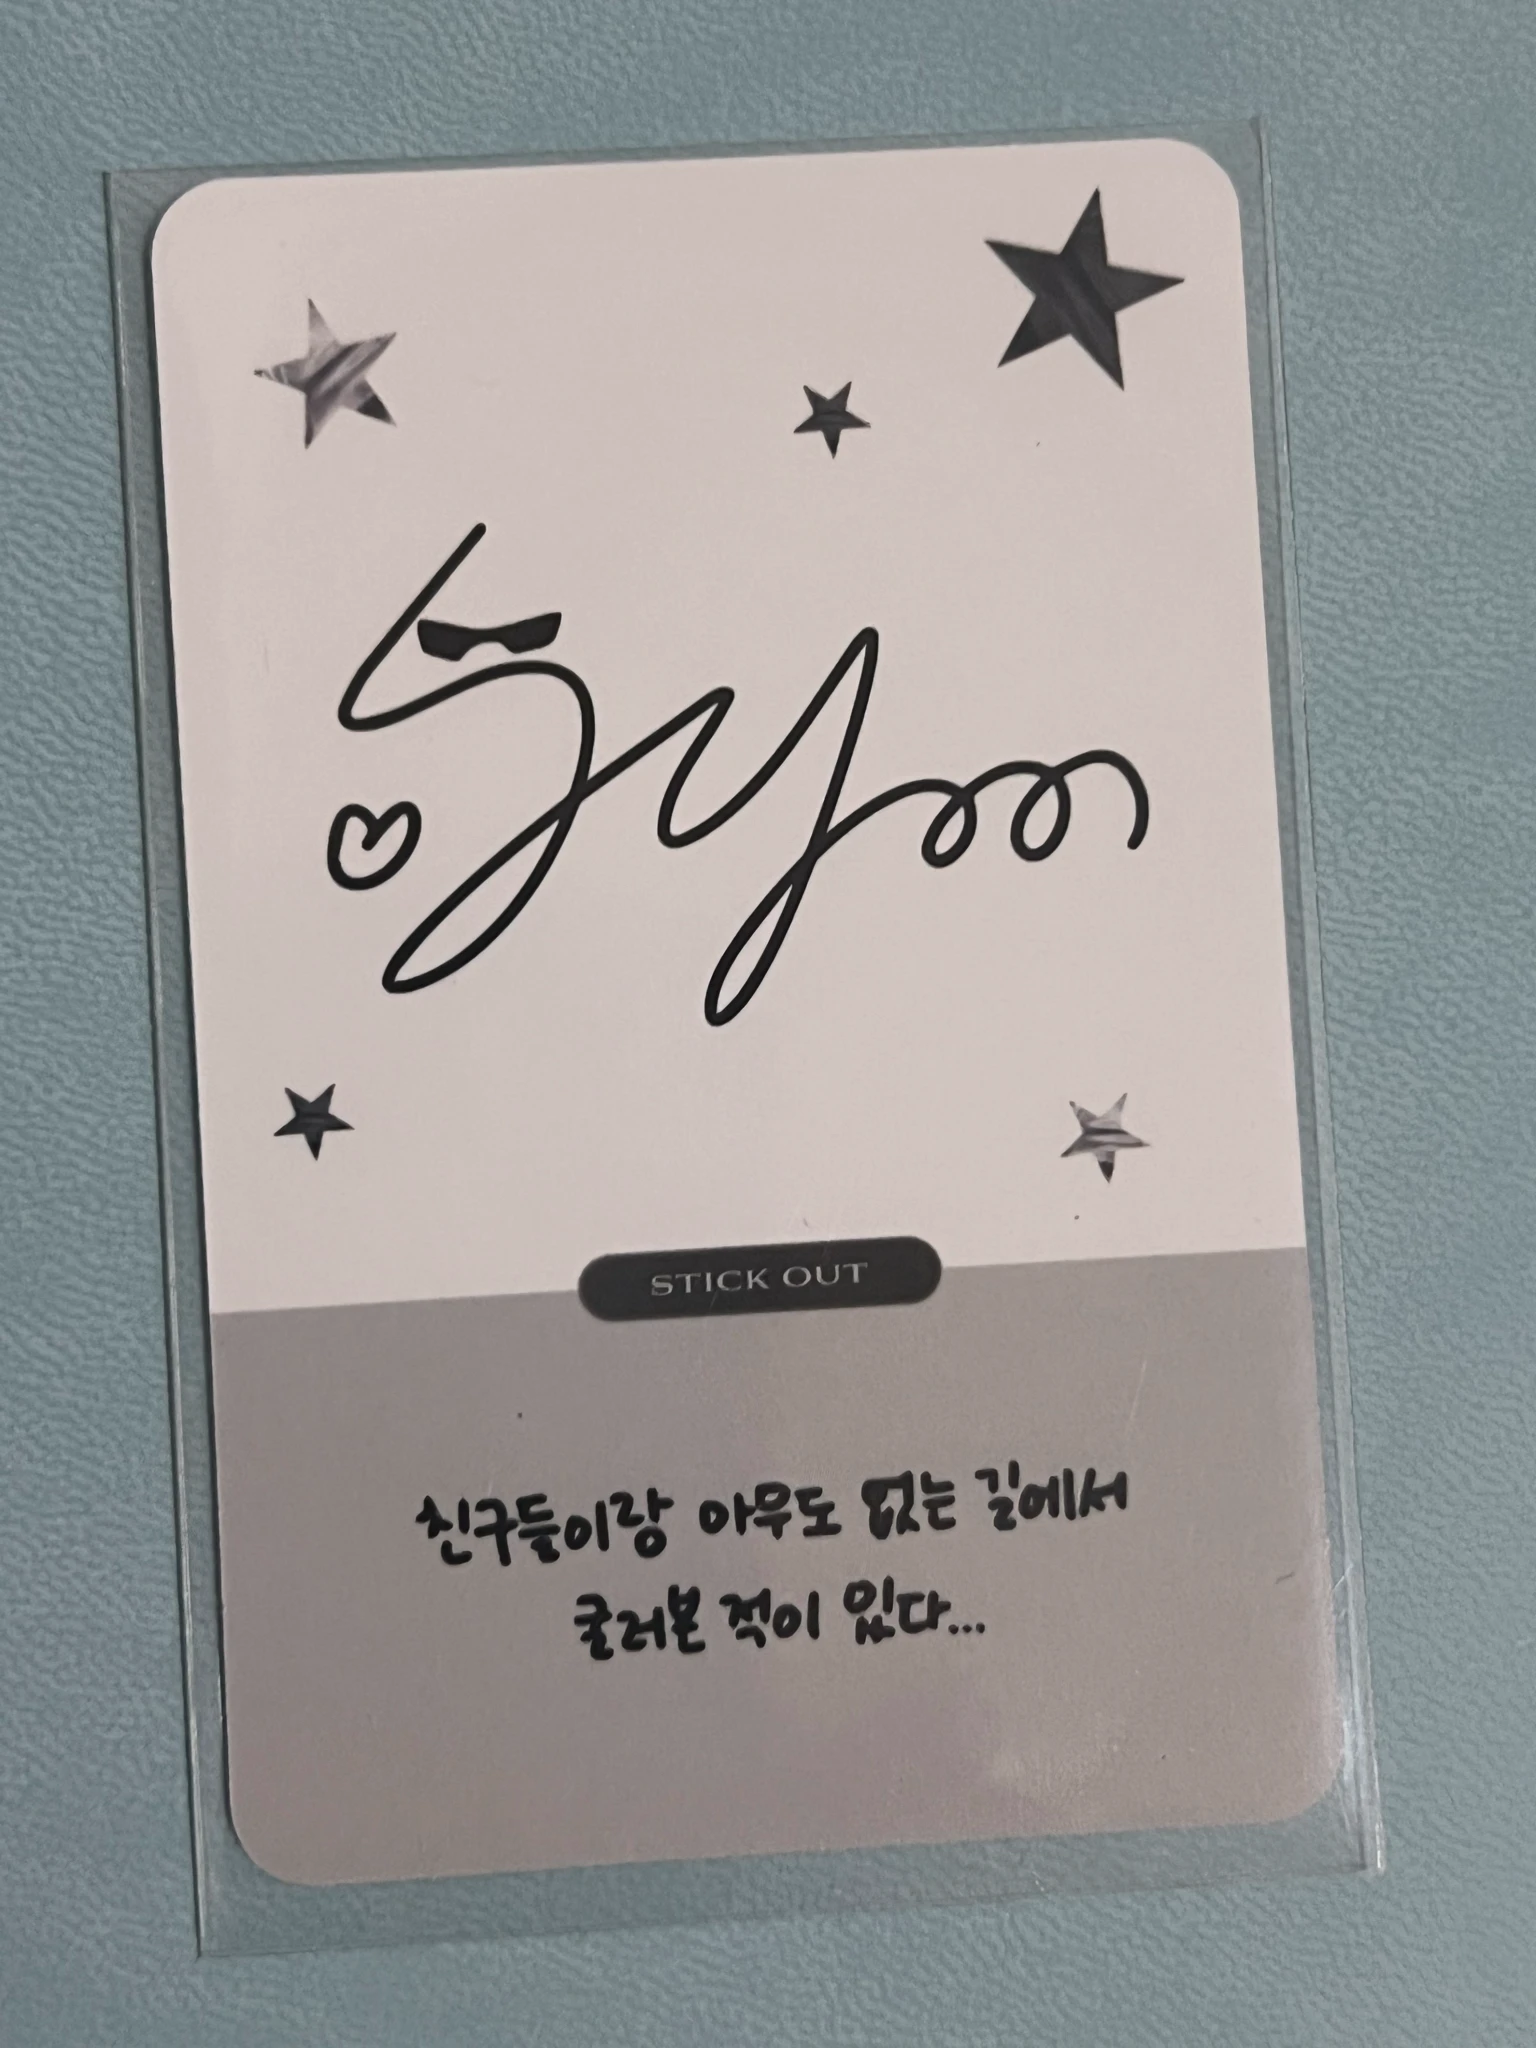 STICK OUT
친구들이랑 아무도 없는 길에서
굴러본 적이 있다...